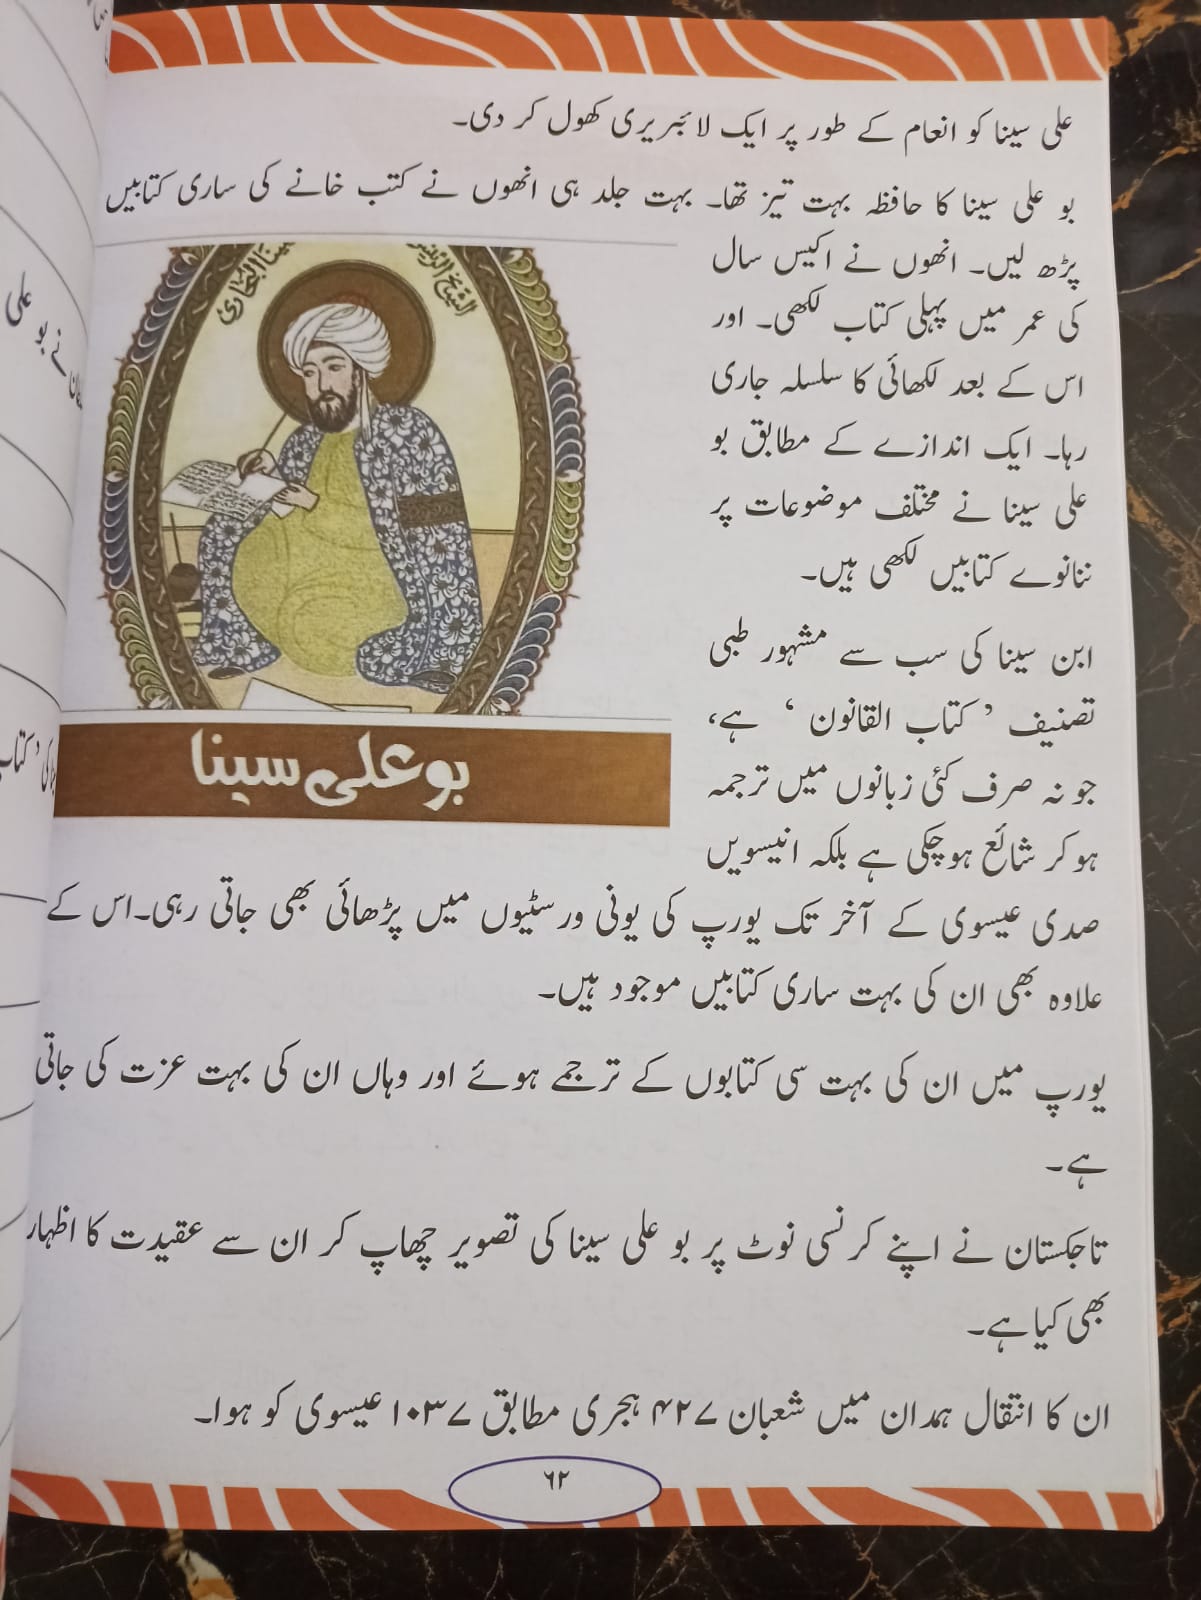 علی سینا کو انعام کے طور پر ایک لائبریری کھول کر دی۔
بو علی سینا کا حافظہ بہت تیز تھا۔ بہت جلد ہی انھوں نے کتب خانے کی ساری کتابیں
پڑھ لیں۔ انھوں نے اکیس سال
کی عمر میں پہلی کتاب لکھی۔ اور
اس کے بعد لکھائی کا سلسلہ جاری
رہا۔ ایک اندازے کے مطابق بو
علی سینا نے مختلف موضوعات پر
ننانوے کتابیں لکھی ہیں۔
ابن سینا کی سب سے مشہور طبی
تصنیف ’ کتاب القانون ‘ ہے،
جو نہ صرف کئی زبانوں میں ترجمہ
ہو کر شائع ہوچکی ہے بلکہ انیسویں
بو علی سینا
صدی عیسوی کے آخر تک یورپ کی یونی ورسٹیوں میں پڑھائی بھی جاتی رہی۔اس کے
علاوہ بھی ان کی بہت ساری کتابیں موجود ہیں۔
یورپ میں ان کی بہت سی کتابوں کے ترجمے ہوئے اور وہاں ان کی بہت عزت کی جاتی
ہے۔
تاجکستان نے اپنے کرنسی نوٹ پر بو علی سینا کی تصویر چھاپ کر ان سے عقیدت کا اظہار
بھی کیا ہے۔
ان کا انتقال ہمدان میں شعبان ۴۲۷ ہجری مطابق ۱۰۳۷ عیسوی کو ہوا۔
۶۲
نے بو علی
کی ’کتاب